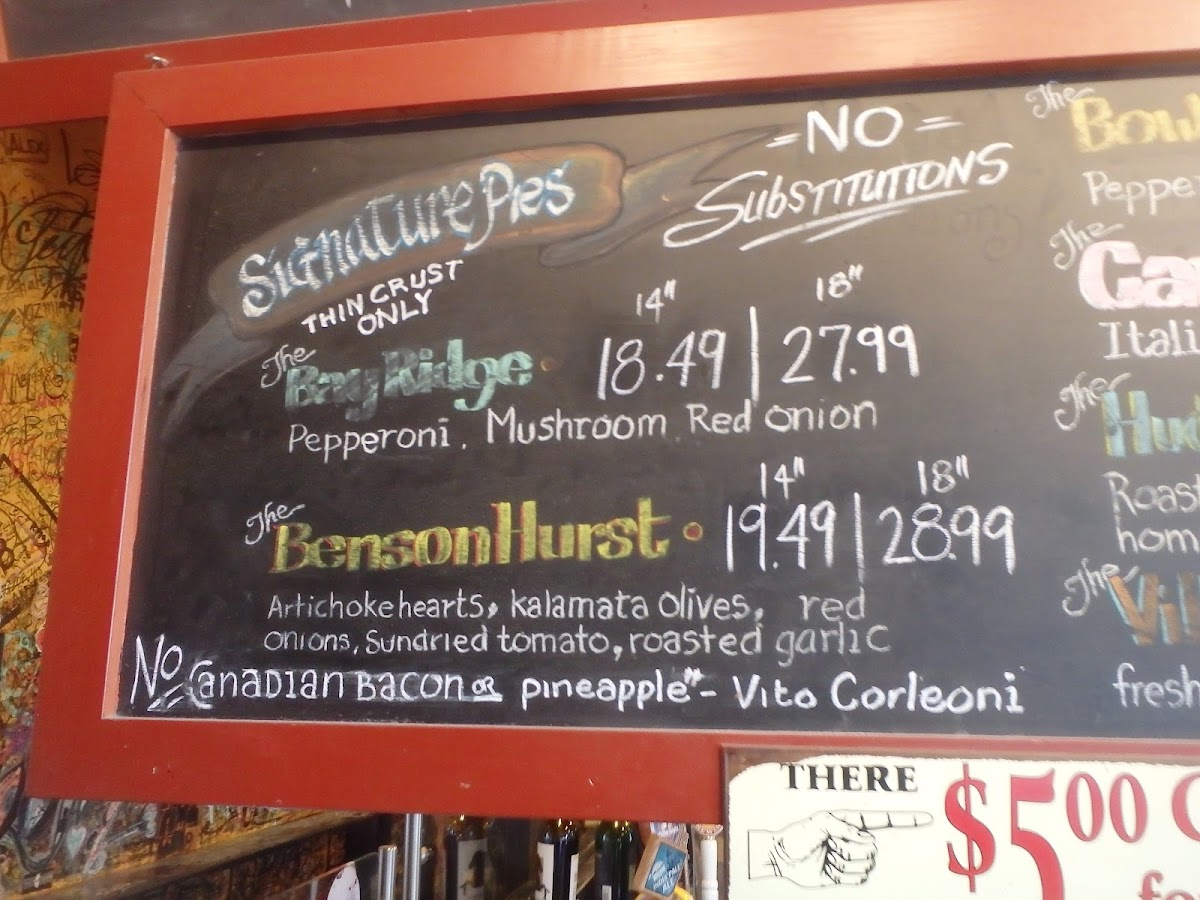 Signature Pies
= NO =
Substitutions
THIN CRUST
ONLY
14" 18"
The
Bay Ridge · 18.49 | 27.99
Pepperoni, Mushroom, Red onion
14" 18"
The
BensonHurst · 19.49 | 28.99
Artichoke hearts, kalamata olives, red
onions, Sundried tomato, roasted garlic
No Canadian Bacon or pineapple" - Vito Corleoni
The
Peppe
The
Itali
The
Roast
hom
The
fresh
THERE
$5.00
ALEX